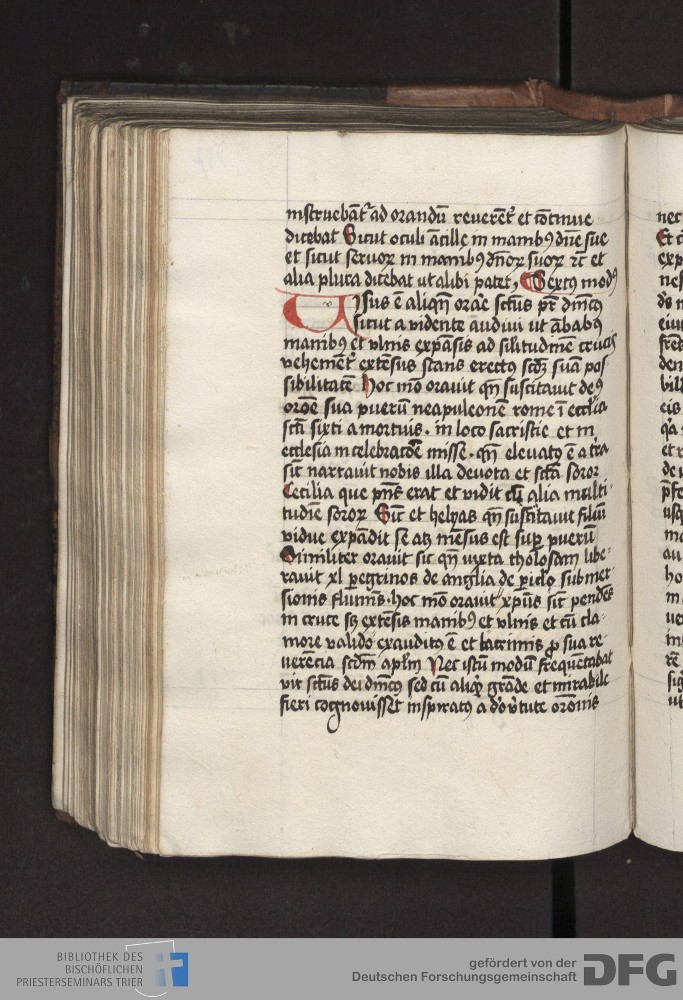 instruebāt᷑ ad orandū reuerēt᷑ et cōtinue
dicebat Sicut oculi ācille in manibꝰ dn̄e sue
et sicut seruoꝝ in manibꝰ dn̄oꝝ suoꝝ ⁊c et
alia plura dicebat ut alibi patet, Sextꝰ modꝰ
Uisus ē aliqn̄ orāe sc̄tus pr̄ dm̄icꝰ
sicut a vidente audiui ut ābabꝰ
manibꝰ et vlnis expāsis ad silitudinē crucis
vehemēt᷑ extēsus stans erectꝰ scdꝫ suā pos
sibilitatē Hoc mō orauit qn̄ suscitauit deꝰ
orōe sua puerū neapuleonē rome ī ecclīa
scī sixti a mortuis. in loco sacristie et in
ecclesia in celebratōe misse. qn̄ eleuatꝰ ē a t͛ra
sic̄ narrauit nobis illa deuota et sc̄tā soror
Cecilia que pn̄s erat et vidit cū alia multi
tudīe soroꝝ Sic̄ et helyas qn̄ suscitauit filiū
vidue expādit se atꝫ mēsus est suꝑ puerū
Similiter orauit sic qn̄ iuxta tholosam libe
rauit xl peregrinos de anglia de ꝑiclo submer
sionis fluminis. hoc mō orauit xp̄us sic̄ pendēs
in cruce sꝫ extēsis manibꝰ et vlnis et cū cla
more valido exauditꝰ ē et lacrimis ꝓ sua re
uerēcia scdm̄ aplm̄ Nec istū modū frequētabat
vir sc̄tus dei dm̄icꝰ sed cū aliqͥ grāde et mirabile
fieri cognouisset inspiratꝰ a dō v͛tute orōnis
nec
Et
exp
nes
eiu
den
bill
eis
et
de
BIBLIOTHEK DES
BISCHÖFLICHEN
PRIESTERSEMINARS TRIER
gefördert von der
Deutschen Forschungsgemeinschaft
DFG